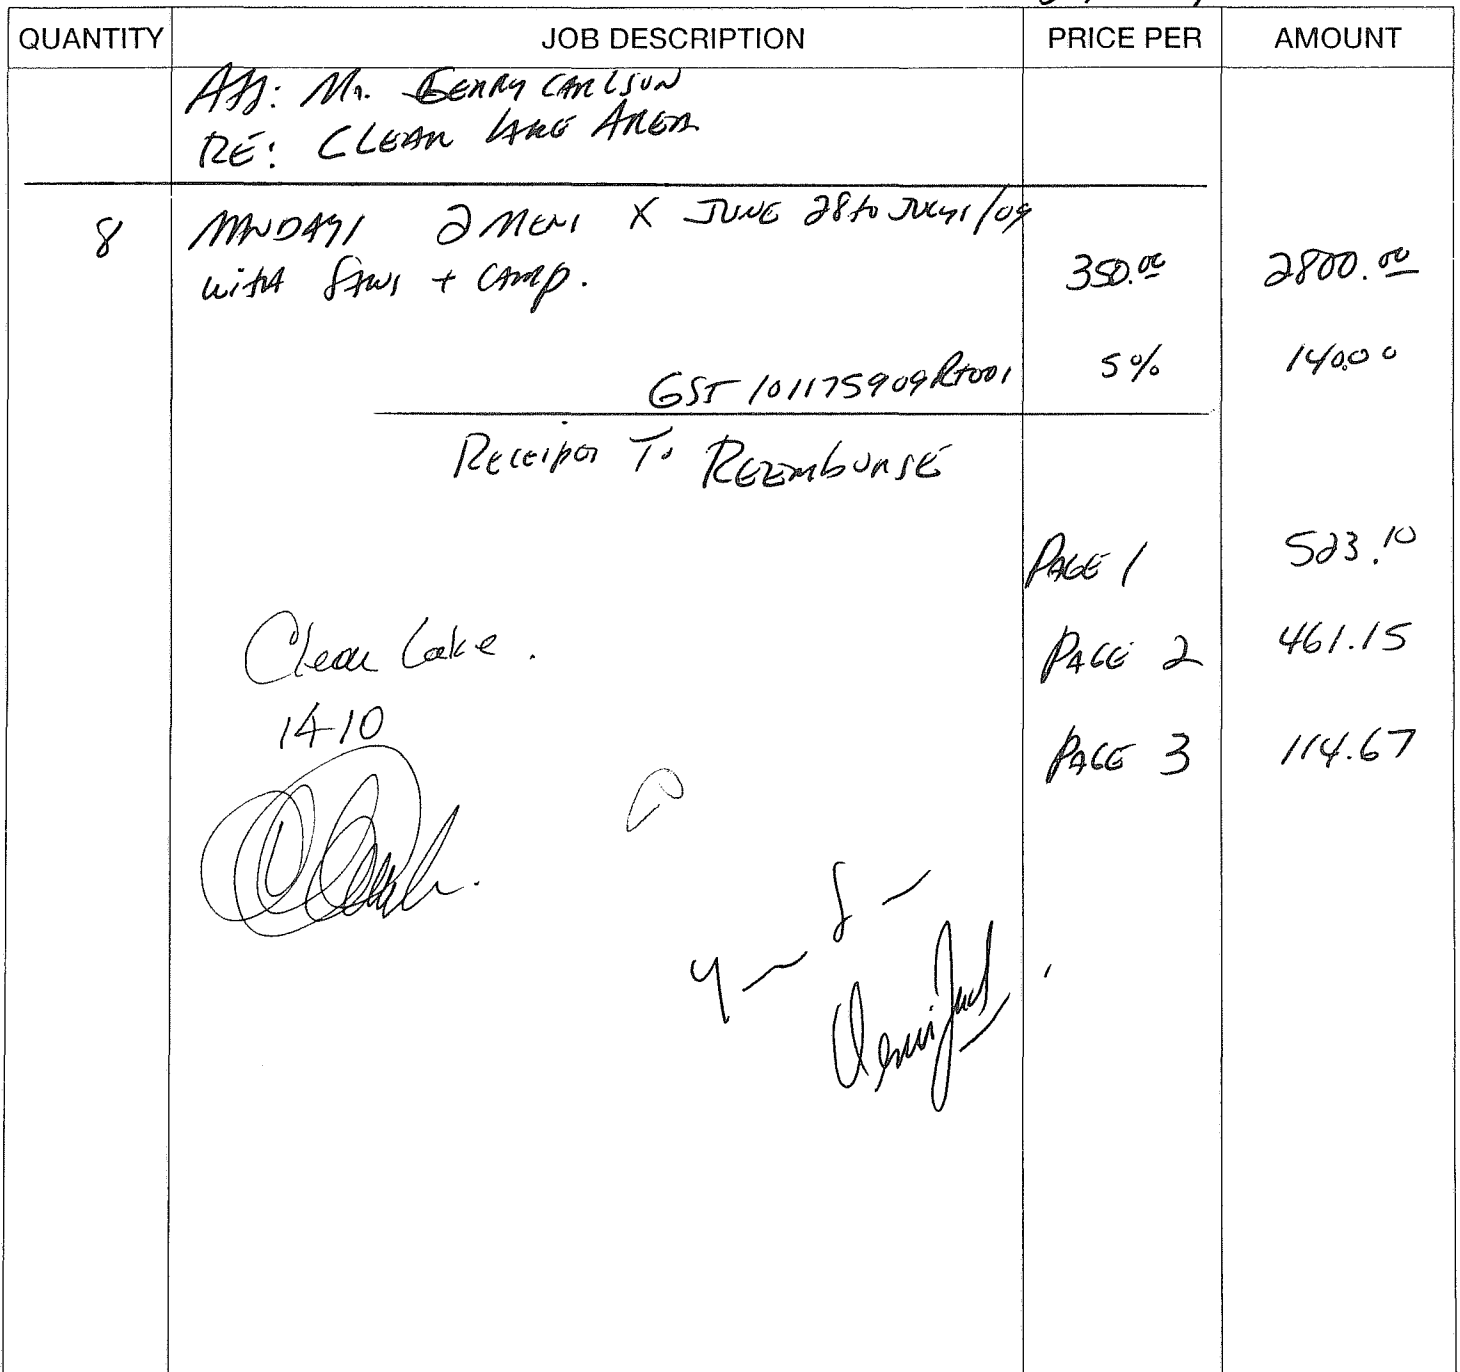 QUANTITY JOB DESCRIPTION PRICE PER AMOUNT
Att: Mr. GERRY CARLSON
RE: CLEAR LAKE AREA
8 MANDAYS 2 MENS X JUNE 28 to JULY 1/09
with SAWS + CAMP. 350.00 2800.00
GST 101175909RT001 5% 140.00
Receipts To REEMbURSE
PAGE 1 523.10
Clear Lake. PAGE 2 461.15
14-10 PAGE 3 114.67